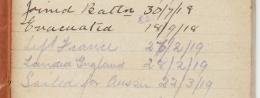 Joined Battn 30/7/18
Evacuated 18/9/18
Left France 26/2/19
Landed England 28/2/19
Sailed for Aussie 22/3/19